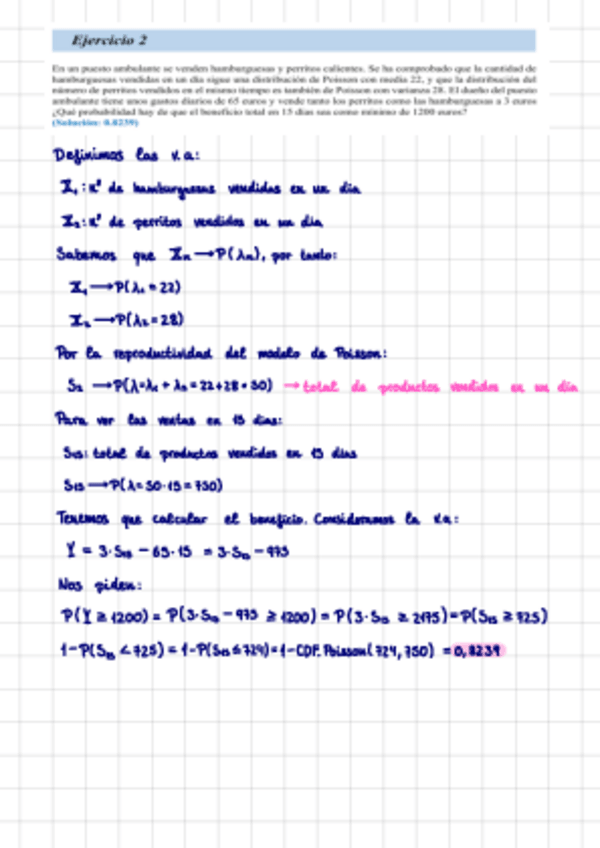 Ejercicio 2
En un puesto ambulante se venden hamburguesas y perritos calientes. Se ha comprobado que la cantidad de
hamburguesas vendidas en un día sigue una distribución de Poisson con media 22, y que la distribución del
número de perritos vendidos en el mismo tiempo es también de Poisson con varianza 28. El dueño del puesto
ambulante tiene unos gastos diarios de 65 euros y vende tanto los perritos como las hamburguesas a 3 euros
¿Qué probabilidad hay de que el beneficio total en 15 días sea como mínimo de 1200 euros?
(Solución: 0.8239)
Definimos las v.a:
X₁: nº de hamburguesas vendidas en un día
X₂: nº de perritos vendidos en un día
Sabemos que Xₙ → P(λₙ), por tanto:
X₁ → P(λ₁ = 22)
X₂ → P(λ₂ = 28)
Por la reproductividad del modelo de Poisson:
S₂ → P(λ=λ₁ + λ₂ = 22+28 = 50) → total de productos vendidos en un día
Para ver las ventas en 15 días:
S₁₅: total de productos vendidos en 15 días
S₁₅ → P(λ= 50·15 = 750)
Tenemos que calcular el beneficio. Consideramos la v.a:
Y = 3·S₁₅ − 65·15 = 3·S₁₅ − 975
Nos piden:
P(Y ≥ 1200) = P(3·S₁₅ − 975 ≥ 1200) = P(3·S₁₅ ≥ 2175) = P(S₁₅ ≥ 725)
1−P(S₁₅ < 725) = 1−P(S₁₅ ≤ 724) = 1−CDF.Poisson(724, 750) = 0,8239